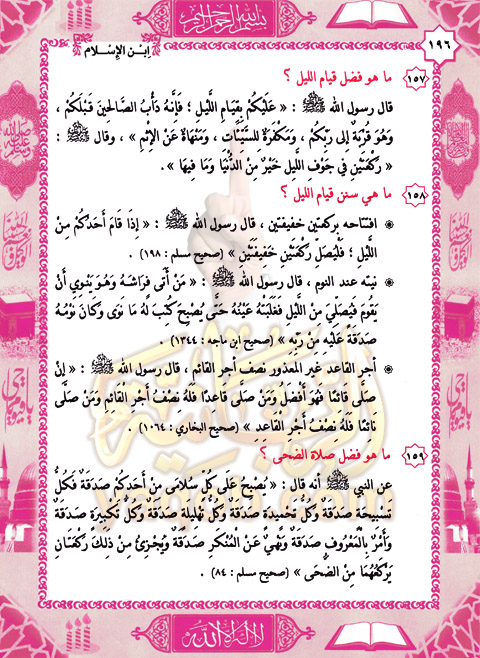 بسم الله الرحمن الرحيم
١٩٦
ابن الإسلام
١٥٧ ما هو فضل قيام الليل ؟
قال رسول الله ﷺ : « عَلَيْكُمْ بِقِيَامِ اللَّيْلِ ؛ فَإِنَّهُ دَأْبُ الصَّالِحِينَ قَبْلَكُمْ ،
وَهُوَ قُرْبَةٌ إِلَى رَبِّكُمْ ، وَمَكْفَرَةٌ لِلسَّيِّئَاتِ ، وَمَنْهَاةٌ عَنْ الْإِثْمِ » ، وقال ﷺ :
« رَكْعَتَيْنِ فِي جَوْفِ اللَّيْلِ خَيْرٌ مِنْ الدُّنْيَا وَمَا فِيهَا ».
١٥٨ ما هي سنن قيام الليل ؟
افتتاحه بركعتين خفيفتين ، قال رسول الله ﷺ : « إِذَا قَامَ أَحَدُكُمْ مِنْ
اللَّيْلِ ؛ فَلْيُصَلِّ رَكْعَتَيْنِ خَفِيفَتَيْنِ » (صحيح مسلم : ١٩٨) .
نيته عند النوم ، قال رسول الله ﷺ : « مَنْ أَتَى فِرَاشَهُ وَهُوَ يَنْوِي أَنْ
يَقُومَ فَيُصَلِّيَ مِنْ اللَّيْلِ فَغَلَبَتْهُ عَيْنُهُ حَتَّى يُصْبِحَ كُتِبَ لَهُ مَا نَوَى وَكَانَ نَوْمُهُ
صَدَقَةً عَلَيْهِ مِنْ رَبِّهِ » (صحيح ابن ماجه : ١٣٤٤) .
أجر القاعد غير المعذور نصف أجر القائم ، قال رسول الله ﷺ : « إِنْ
صَلَّى قَائِمًا فَهُوَ أَفْضَلُ وَمَنْ صَلَّى قَاعِدًا فَلَهُ نِصْفُ أَجْرِ الْقَائِمِ وَمَنْ صَلَّى
نَائِمًا فَلَهُ نِصْفُ أَجْرِ الْقَاعِدِ » (صحيح البخاري : ١٠٦٤) .
١٥٩ ما هو فضل صلاة الضحى ؟
عن النبي ﷺ أنه قال : « يُصْبِحُ عَلَى كُلِّ سُلَامَى مِنْ أَحَدِكُمْ صَدَقَةٌ فَكُلُّ
تَسْبِيحَةٍ صَدَقَةٌ وَكُلُّ تَحْمِيدَةٍ صَدَقَةٌ وَكُلُّ تَهْلِيلَةٍ صَدَقَةٌ وَكُلُّ تَكْبِيرَةٍ صَدَقَةٌ
وَأَمْرٌ بِالْمَعْرُوفِ صَدَقَةٌ وَنَهْيٌ عَنْ الْمُنْكَرِ صَدَقَةٌ وَيُجْزِئُ مِنْ ذَلِكَ رَكْعَتَانِ
يَرْكَعُهُمَا مِنْ الضُّحَى » (صحيح مسلم : ٨٤) .
لا إله إلا الله